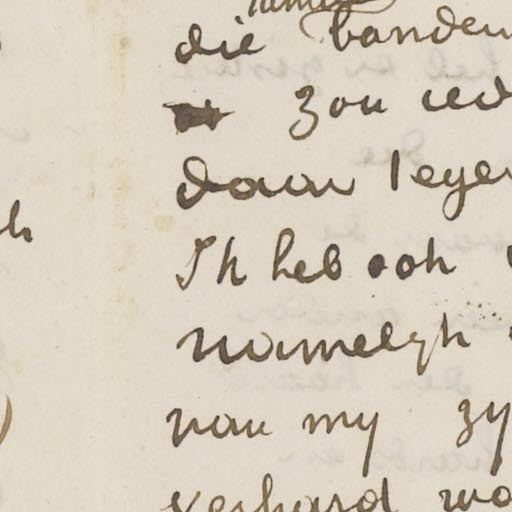 die banden
zou
daar tegen
Ik heb ook
namelyk
van my zy
verhard wo